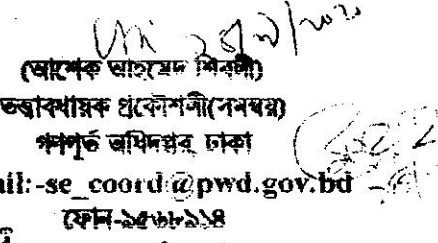 (আশেক আহমেদ শিবলী)
তত্ত্বাবধায়ক প্রকৌশলী(সমন্বয়)
গণপূর্ত অধিদপ্তর, ঢাকা
ail:-se_coord@pwd.gov.bd
ফোন-৯৫৬৮১১৪